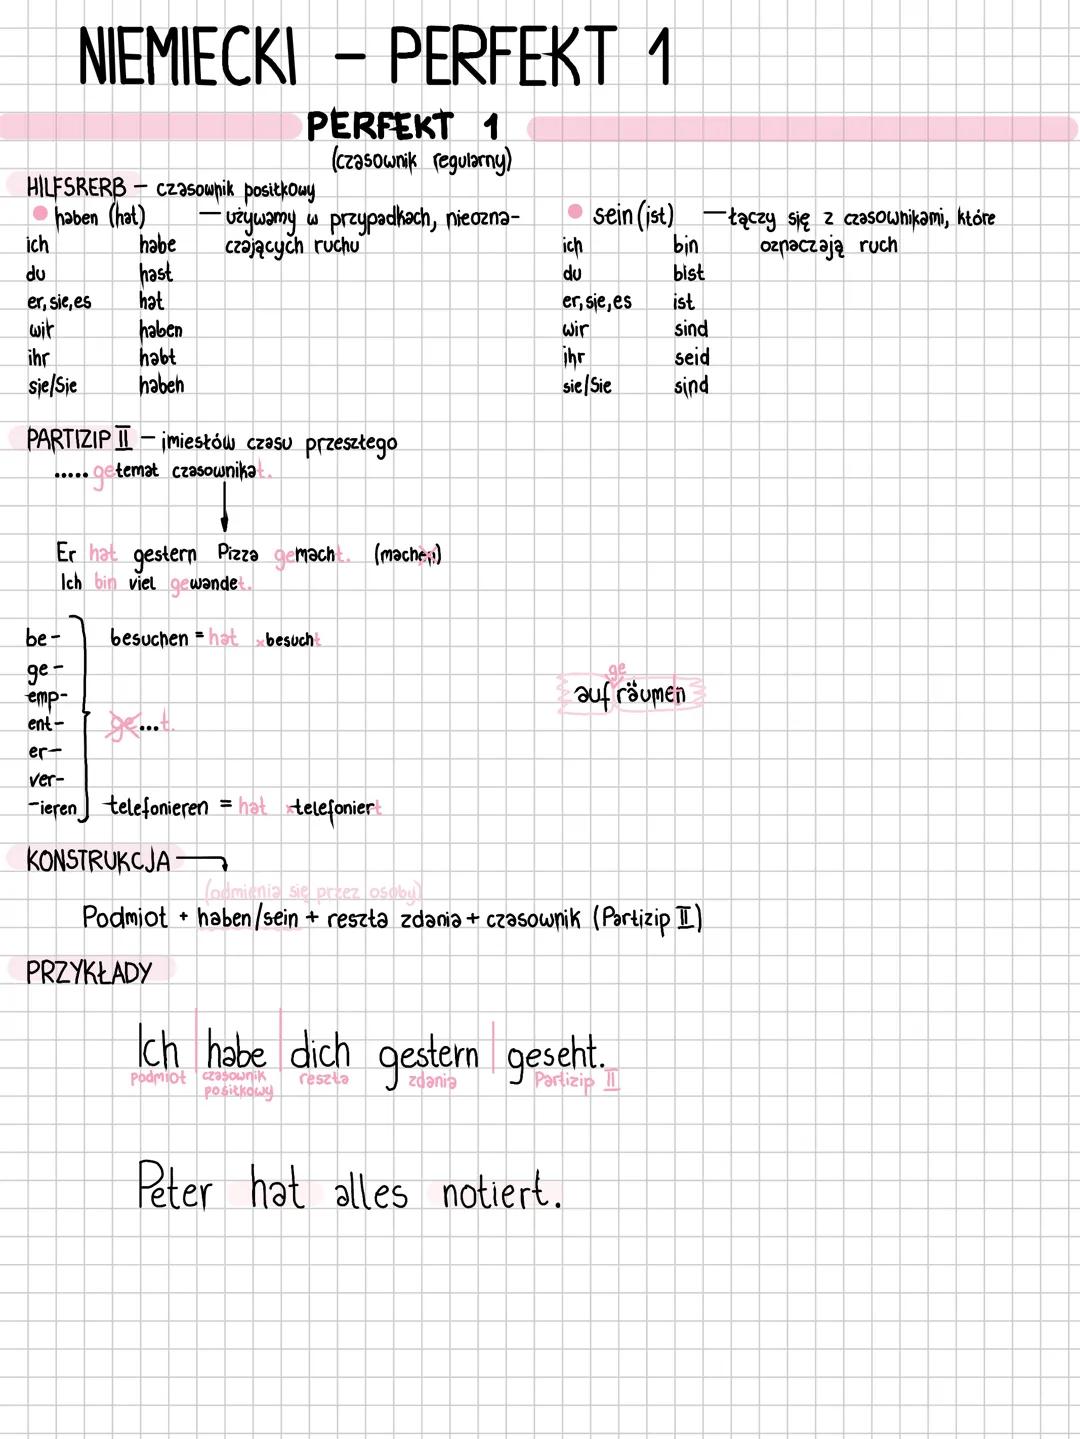 NIEMIECKI - PERFEKT 1
PERFEKT 1
(czasownik regularny)
HILFSRERB - czasownik positkowy
haben (hat) - używamy w przypadkach, nieozna-
czających ruchu
ich habe
du hast
er, sie, es hat
wir haben
ihr habt
sie/Sie haben
sein (ist) - łączy się z czasownikami, które
oznaczają ruch
ich bin
du bist
er, sie, es ist
wir sind
ihr seid
sie/Sie sind
PARTIZIP II - imiesłów czasu przeszłego
..... getemat czasownikat.
Er hat gestern Pizza gemacht. (machen)
Ich bin viel gewandet.
be- besuchen = hat xbesucht
ge-
emp-
ent- ge...t.
er-
ver-
-ieren telefonieren = hat xtelefoniert
ge
aufräumen
KONSTRUKCJA
(odmienia się przez osoby)
Podmiot + haben/sein + reszta zdania + czasownik (Partizip II)
PRZYKŁADY
Ich | habe | dich gestern | geseht.
podmiot czasownik reszta zdania Partizip II
positkowy
Peter hat alles notiert.